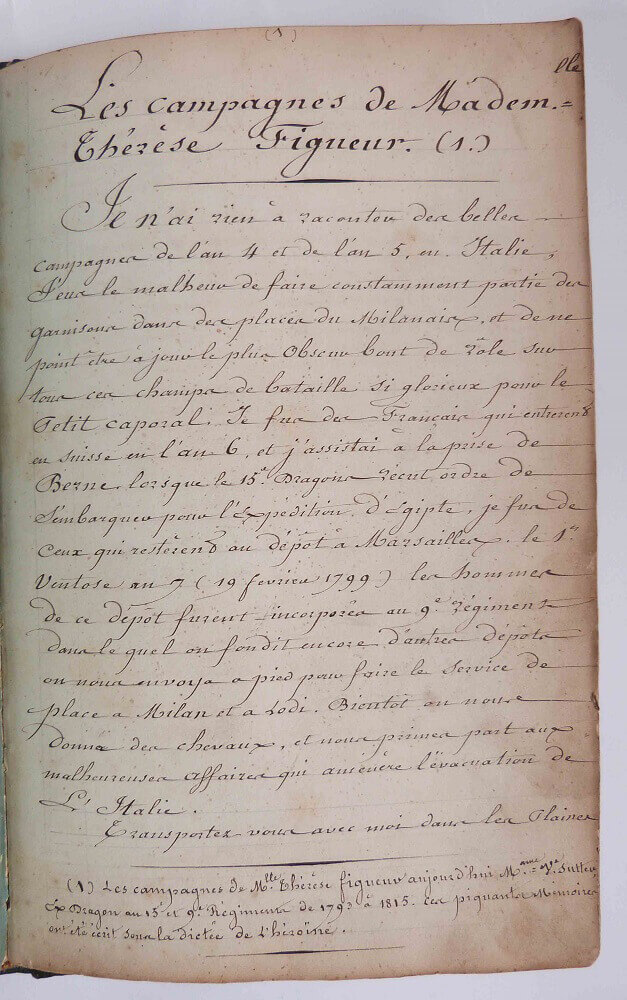 (1)
Les campagnes de Madem.= lle
Thérèse Figueur. (1.)
Je n'ai rien à raconter des belles
campagnes de l'an 4 et de l'an 5, en Italie,
J'eus le malheur de faire constamment partie des
garnisons dans des places du Milanais, et de ne
point être à jouer le plus Obscur bout de rôle sur
tous ces champs de bataille si glorieux pour le
Petit caporal. Je fus des Français qui entrèrent
en Suisse en l'an 6, et j'assistai à la prise de
Berne, lorsque le 15e Dragons reçut ordre de
s'embarquer pour l'Expédition d'Egipte, je fus de
Ceux qui restèrent au dépôt à Marsailles. le 1er
Ventose an 7 (19 fevrier 1799) les hommes
de ce dépôt furent incorporés au 9e régiment
dans le quel on fondit encore d'autres dépots
on nous envoya a pied pour faire le service de
place a Milan et a Lodi. Bientôt on nous
donna des chevaux, et nous primes part aux
malheureuses affaires qui amenère l'évacuation de
L'Italie.
Transportez vous avec moi dans les Plaines
(1) Les campagnes de Mlle Thérèse figueur aujourd'hui Mame Vve Sutter
Ex Dragon au 15e et 9e Regiments de 1793 à 1815. ces piquants Mémoires
ont été écrit sous la dictée de L'héroïne.